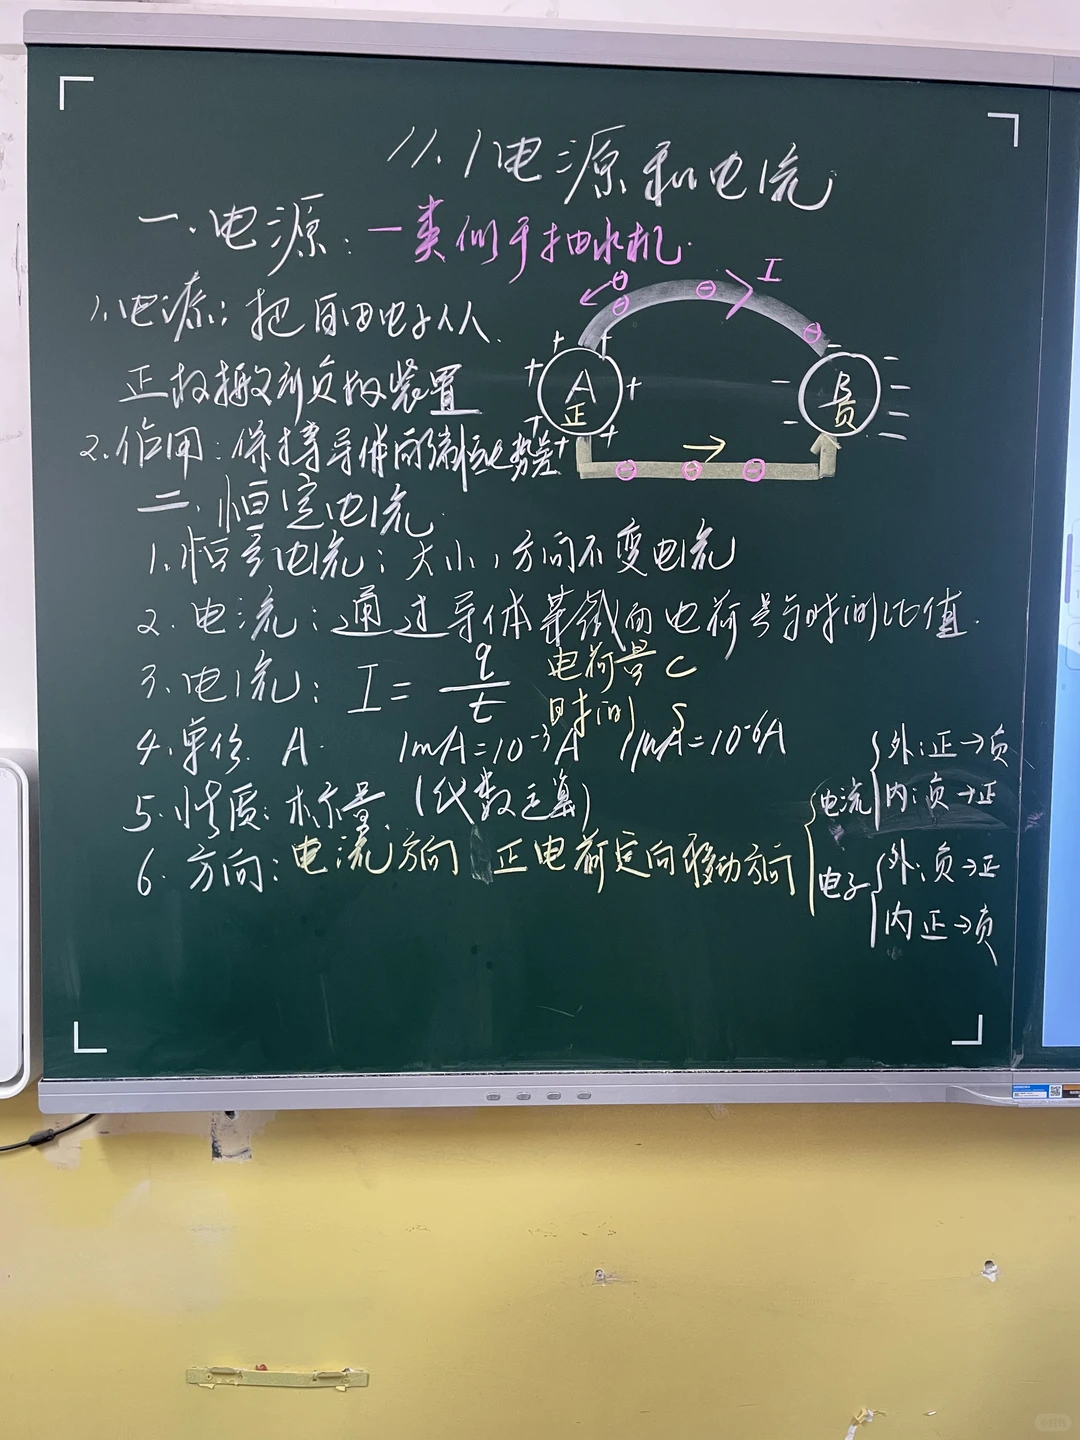 11.1电源和电流
一.电源：—类似于抽水机.
1.电源：把自由电子从
正极搬到负极装置
2.作用：保持导体两端电势差
I
A
正
B
负
二.恒定电流
1.恒定电流：大小、方向不变电流
2.电流：通过导体某截面电荷量与时间比值.
3.电流：I=q/t 电荷量 C
时间 S
4.单位. A. 1mA=10⁻³A 1μA=10⁻⁶A
5.性质：标量.(代数运算)
6.方向：电流方向 正电荷定向移动方向
电流 外：正→负
内：负→正
电子 外：负→正
内 正→负